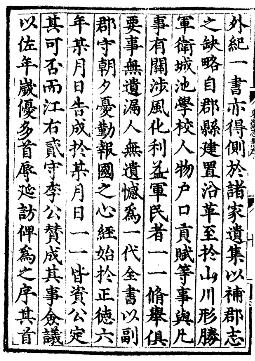 外紀一書亦得側於諸家遺集以補郡志
之缺略自郡縣建置沿革至於山川形勝
軍衛城池學校人物户口貢賦等事與凡
事有關渉風化利益軍民者一一脩舉俱
要事無遺漏人無遺憾為一代全書以副
郡守朝夕憂勤報國之心經始於正德六
年某月日告成於某月日一一皆資公定
其可否而江右貳守李公賛成其事僉議
以佐年嵗優多首辱延訪俾為之序其首